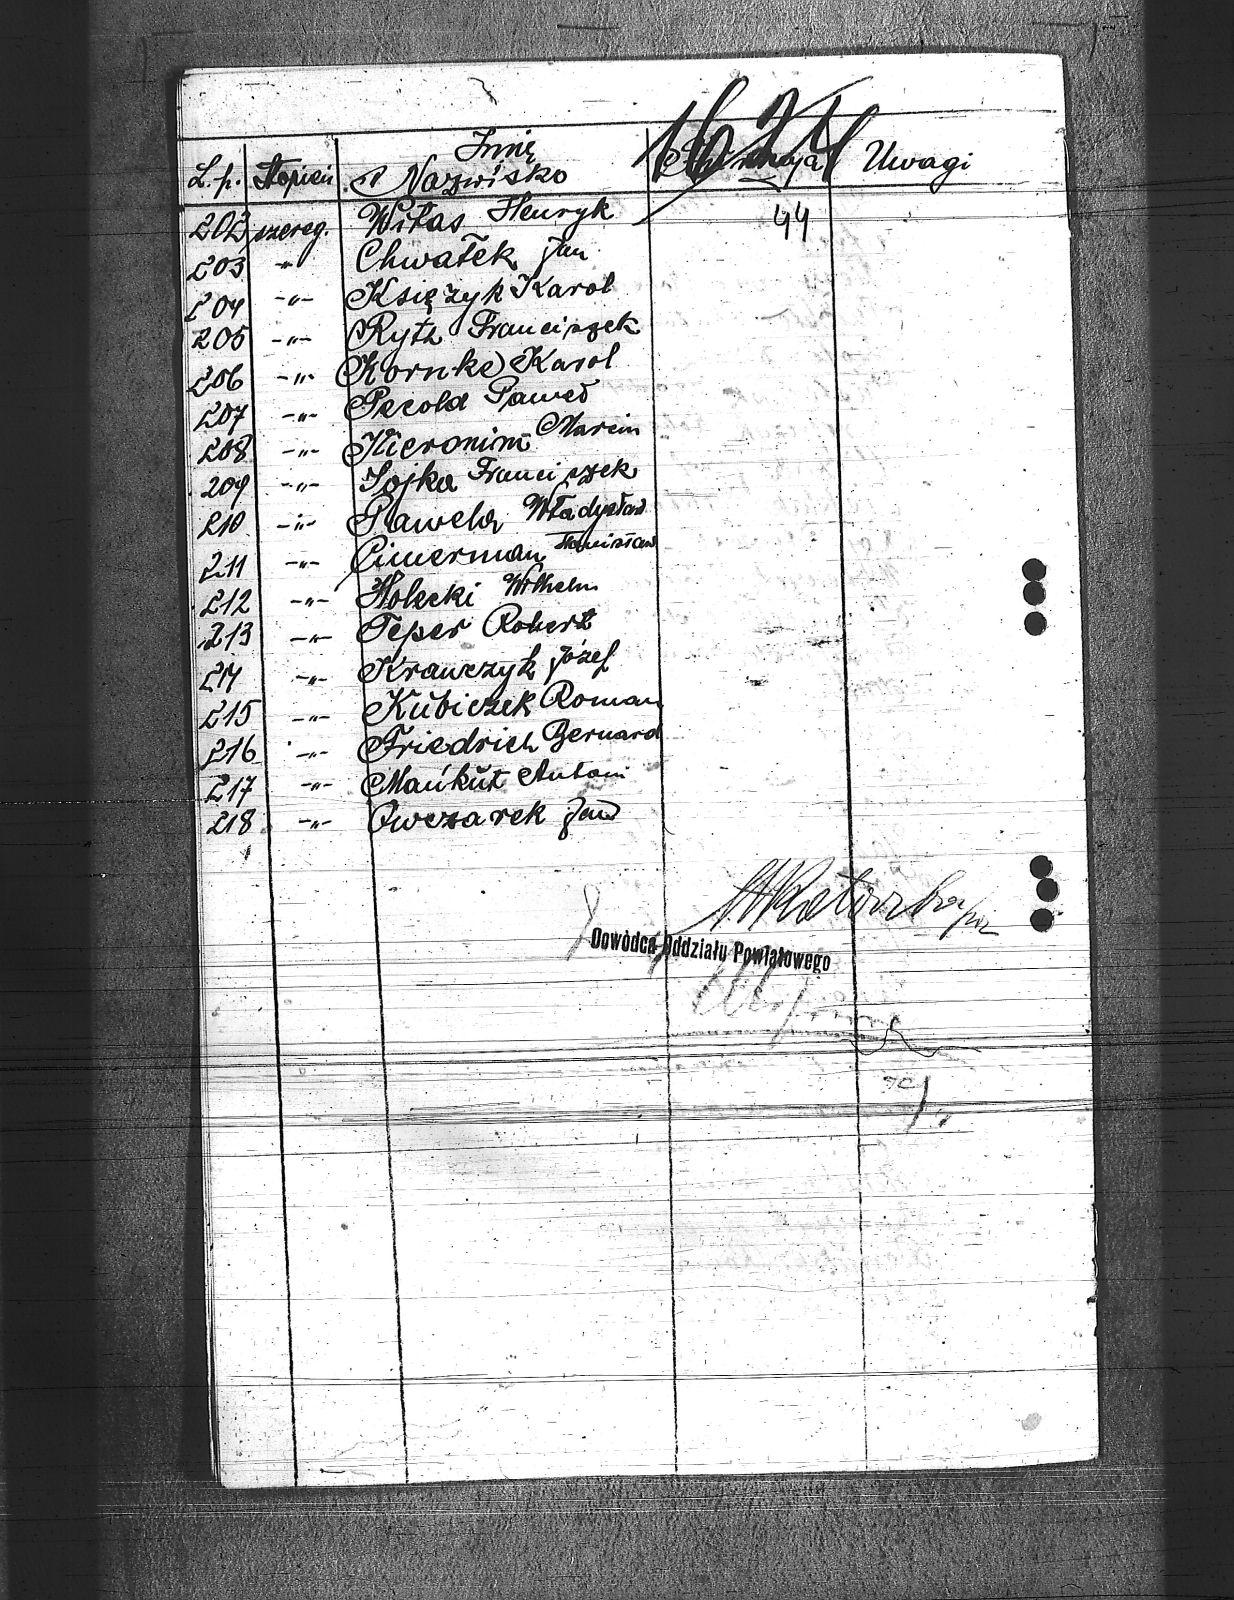 1624
L.p. Stopień Imię i Nazwisko Uwagi
202 szereg. Witas Henryk 44
203 -"- Chwałek Jan
204 -"- Księżyk Karol
205 -"- Rytz Franciszek
206 -"- Kornke Karol
207 -"- Pecold Paweł
208 -"- Hieronim Marcin
209 -"- Sojka Franciszek
210 -"- Pawela Władysław
211 -"- Cimerman Stanisław
212 -"- Holecki Wilhelm
213 -"- Teper Robert
214 -"- Krawczyk Józef
215 -"- Kubiczek Roman
216 -"- Friedrich Bernard
217 -"- Mańkut Antoni
218 -"- Owczarek Jan
Dowódca Oddziału Powiatowego